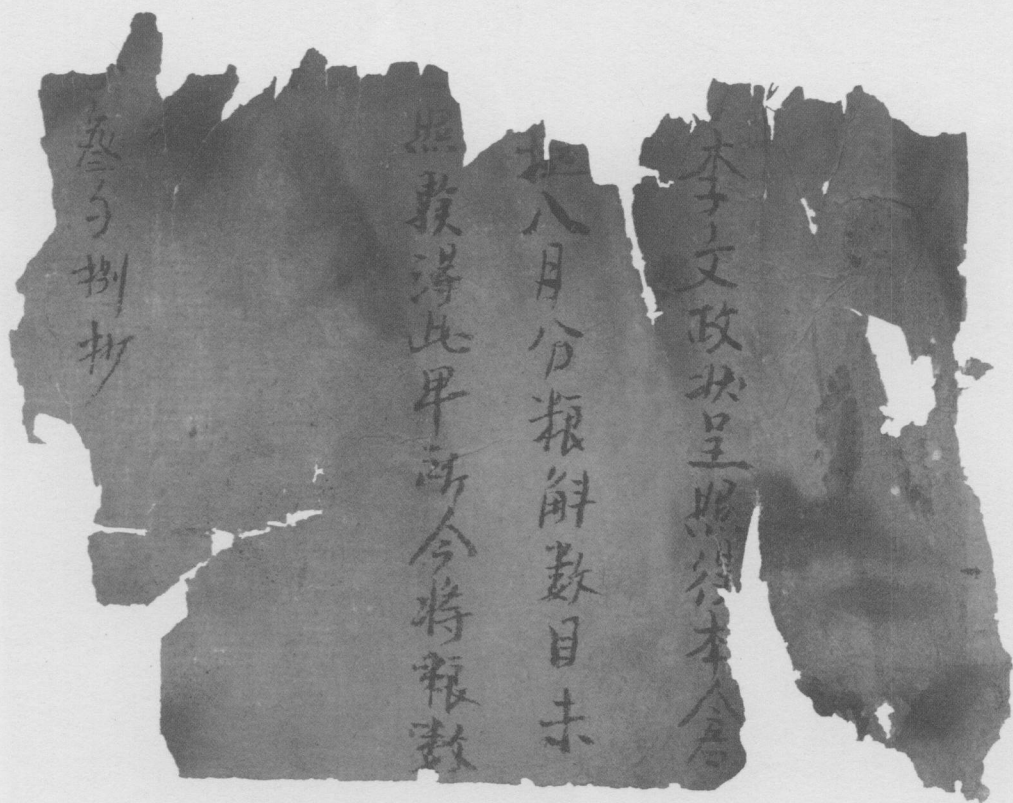 李文政状呈照得本仓
八月分粮斛数目未
照验得此卑所今将粮数
叁勺捌抄